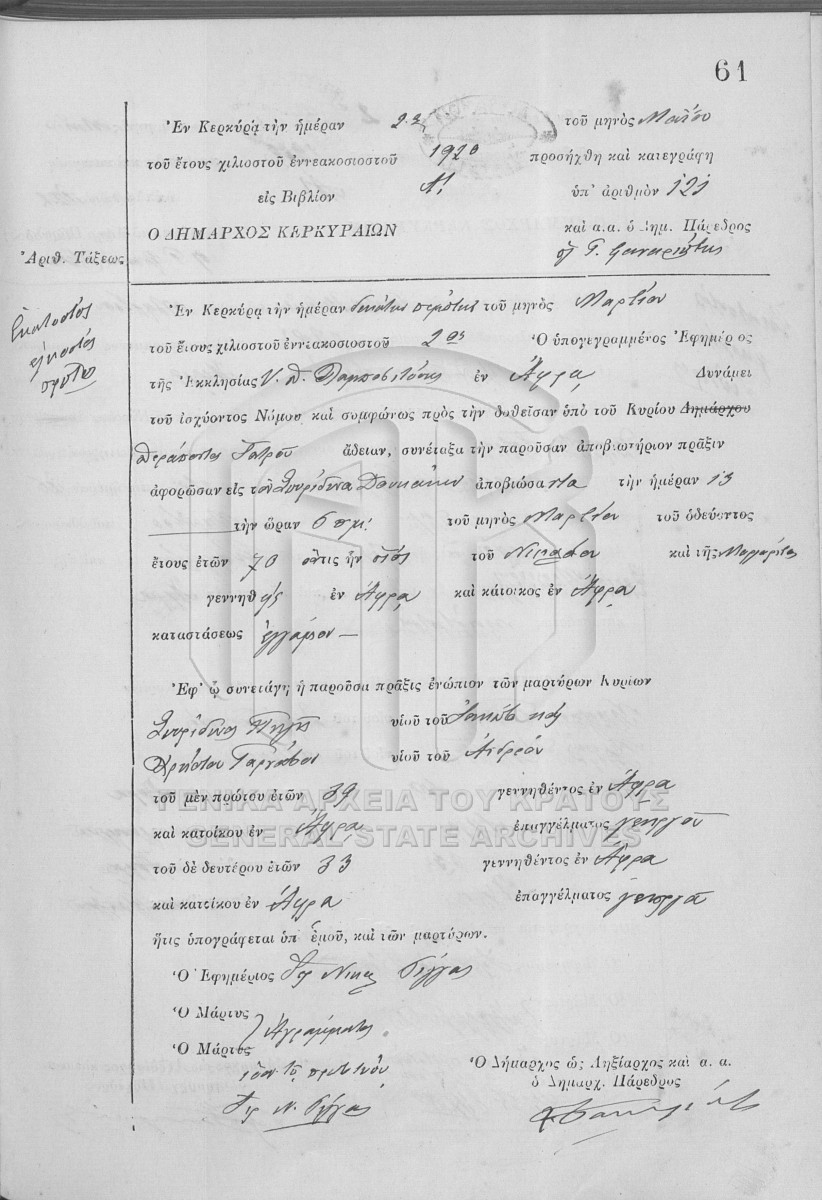 61
Ἐν Κερκύρᾳ τὴν ἡμέραν 23 τοῦ μηνὸς Μαΐου
τοῦ ἔτους χιλιοστοῦ ἐννεακοσιοστοῦ 1920 προσήχθη καὶ κατεγράφη
εἰς Βιβλίον Α! ὑπ' ἀριθμὸν 121
Ο ΔΗΜΑΡΧΟΣ ΚΕΡΚΥΡΑΙΩΝ καὶ α.α. ὁ Δημ. Πάρεδρος
Ἀριθ. Τάξεως
Ἑκατοστὸς
εἰκοστὸς
πρῶτος
Ἐν Κερκύρᾳ τὴν ἡμέραν δεκάτην πέμπτην τοῦ μηνὸς Μαρτίου
τοῦ ἔτους χιλιοστοῦ ἐννεακοσιοστοῦ Ὁ ὑπογεγραμμένος Ἐφημέριος
τῆς Ἐκκλησίας Υ. Θ. ἐν Ἄφρᾳ Δυνάμει
τοῦ ἰσχύοντος Νόμου καὶ συμφώνως πρὸς τὴν δοθεῖσαν ὑπὸ τοῦ Κυρίου Δημάρχου
Θεράποντος Ἰατροῦ ἄδειαν, συνέταξα τὴν παροῦσαν ἀποβιωτήριον πρᾶξιν
ἀφορῶσαν εἰς τὸν Σπυρίδωνα ἀποβιώσαντα τὴν ἡμέραν 13
τὴν ὥραν 6 π.μ. τοῦ μηνὸς Μαρτίου τοῦ ὁδεύοντος
ἔτους ἐτῶν 70 ὅστις ἦν υἱὸς τοῦ Νικολάου καὶ τῆς Μαργαρίτας
γεννηθεὶς ἐν Ἄφρᾳ καὶ κάτοικος ἐν Ἄφρᾳ
καταστάσεως ἐγγάμου —
Ἐφ' ᾧ συνετάγη ἡ παροῦσα πρᾶξις ἐνώπιον τῶν μαρτύρων Κυρίων
Σπυρίδωνος υἱοῦ τοῦ
Χρήστου υἱοῦ τοῦ Ἀνδρέου
τοῦ μὲν πρώτου ἐτῶν 39 γεννηθέντος ἐν Ἄφρᾳ
ΓΕΝΙΚΑ ΑΡΧΕΙΑ ΤΟΥ ΚΡΑΤΟΥΣ
καὶ κατοίκου ἐν Ἄφρᾳ ἐπαγγέλματος γεωργοῦ
GENERAL STATE ARCHIVES
τοῦ δὲ δευτέρου ἐτῶν 33 γεννηθέντος ἐν Ἄφρᾳ
καὶ κατοίκου ἐν Ἄφρᾳ ἐπαγγέλματος γεωργοῦ
ἥτις ὑπογράφεται ὑπ' ἐμοῦ, καὶ τῶν μαρτύρων.
Ὁ Ἐφημέριος
Ὁ Μάρτυς
Ἀγράμματος
Ὁ Μάρτυς
Ὁ Δήμαρχος ὡς Ληξίαρχος καὶ α. α.
ὁ Δημαρχ. Πάρεδρος